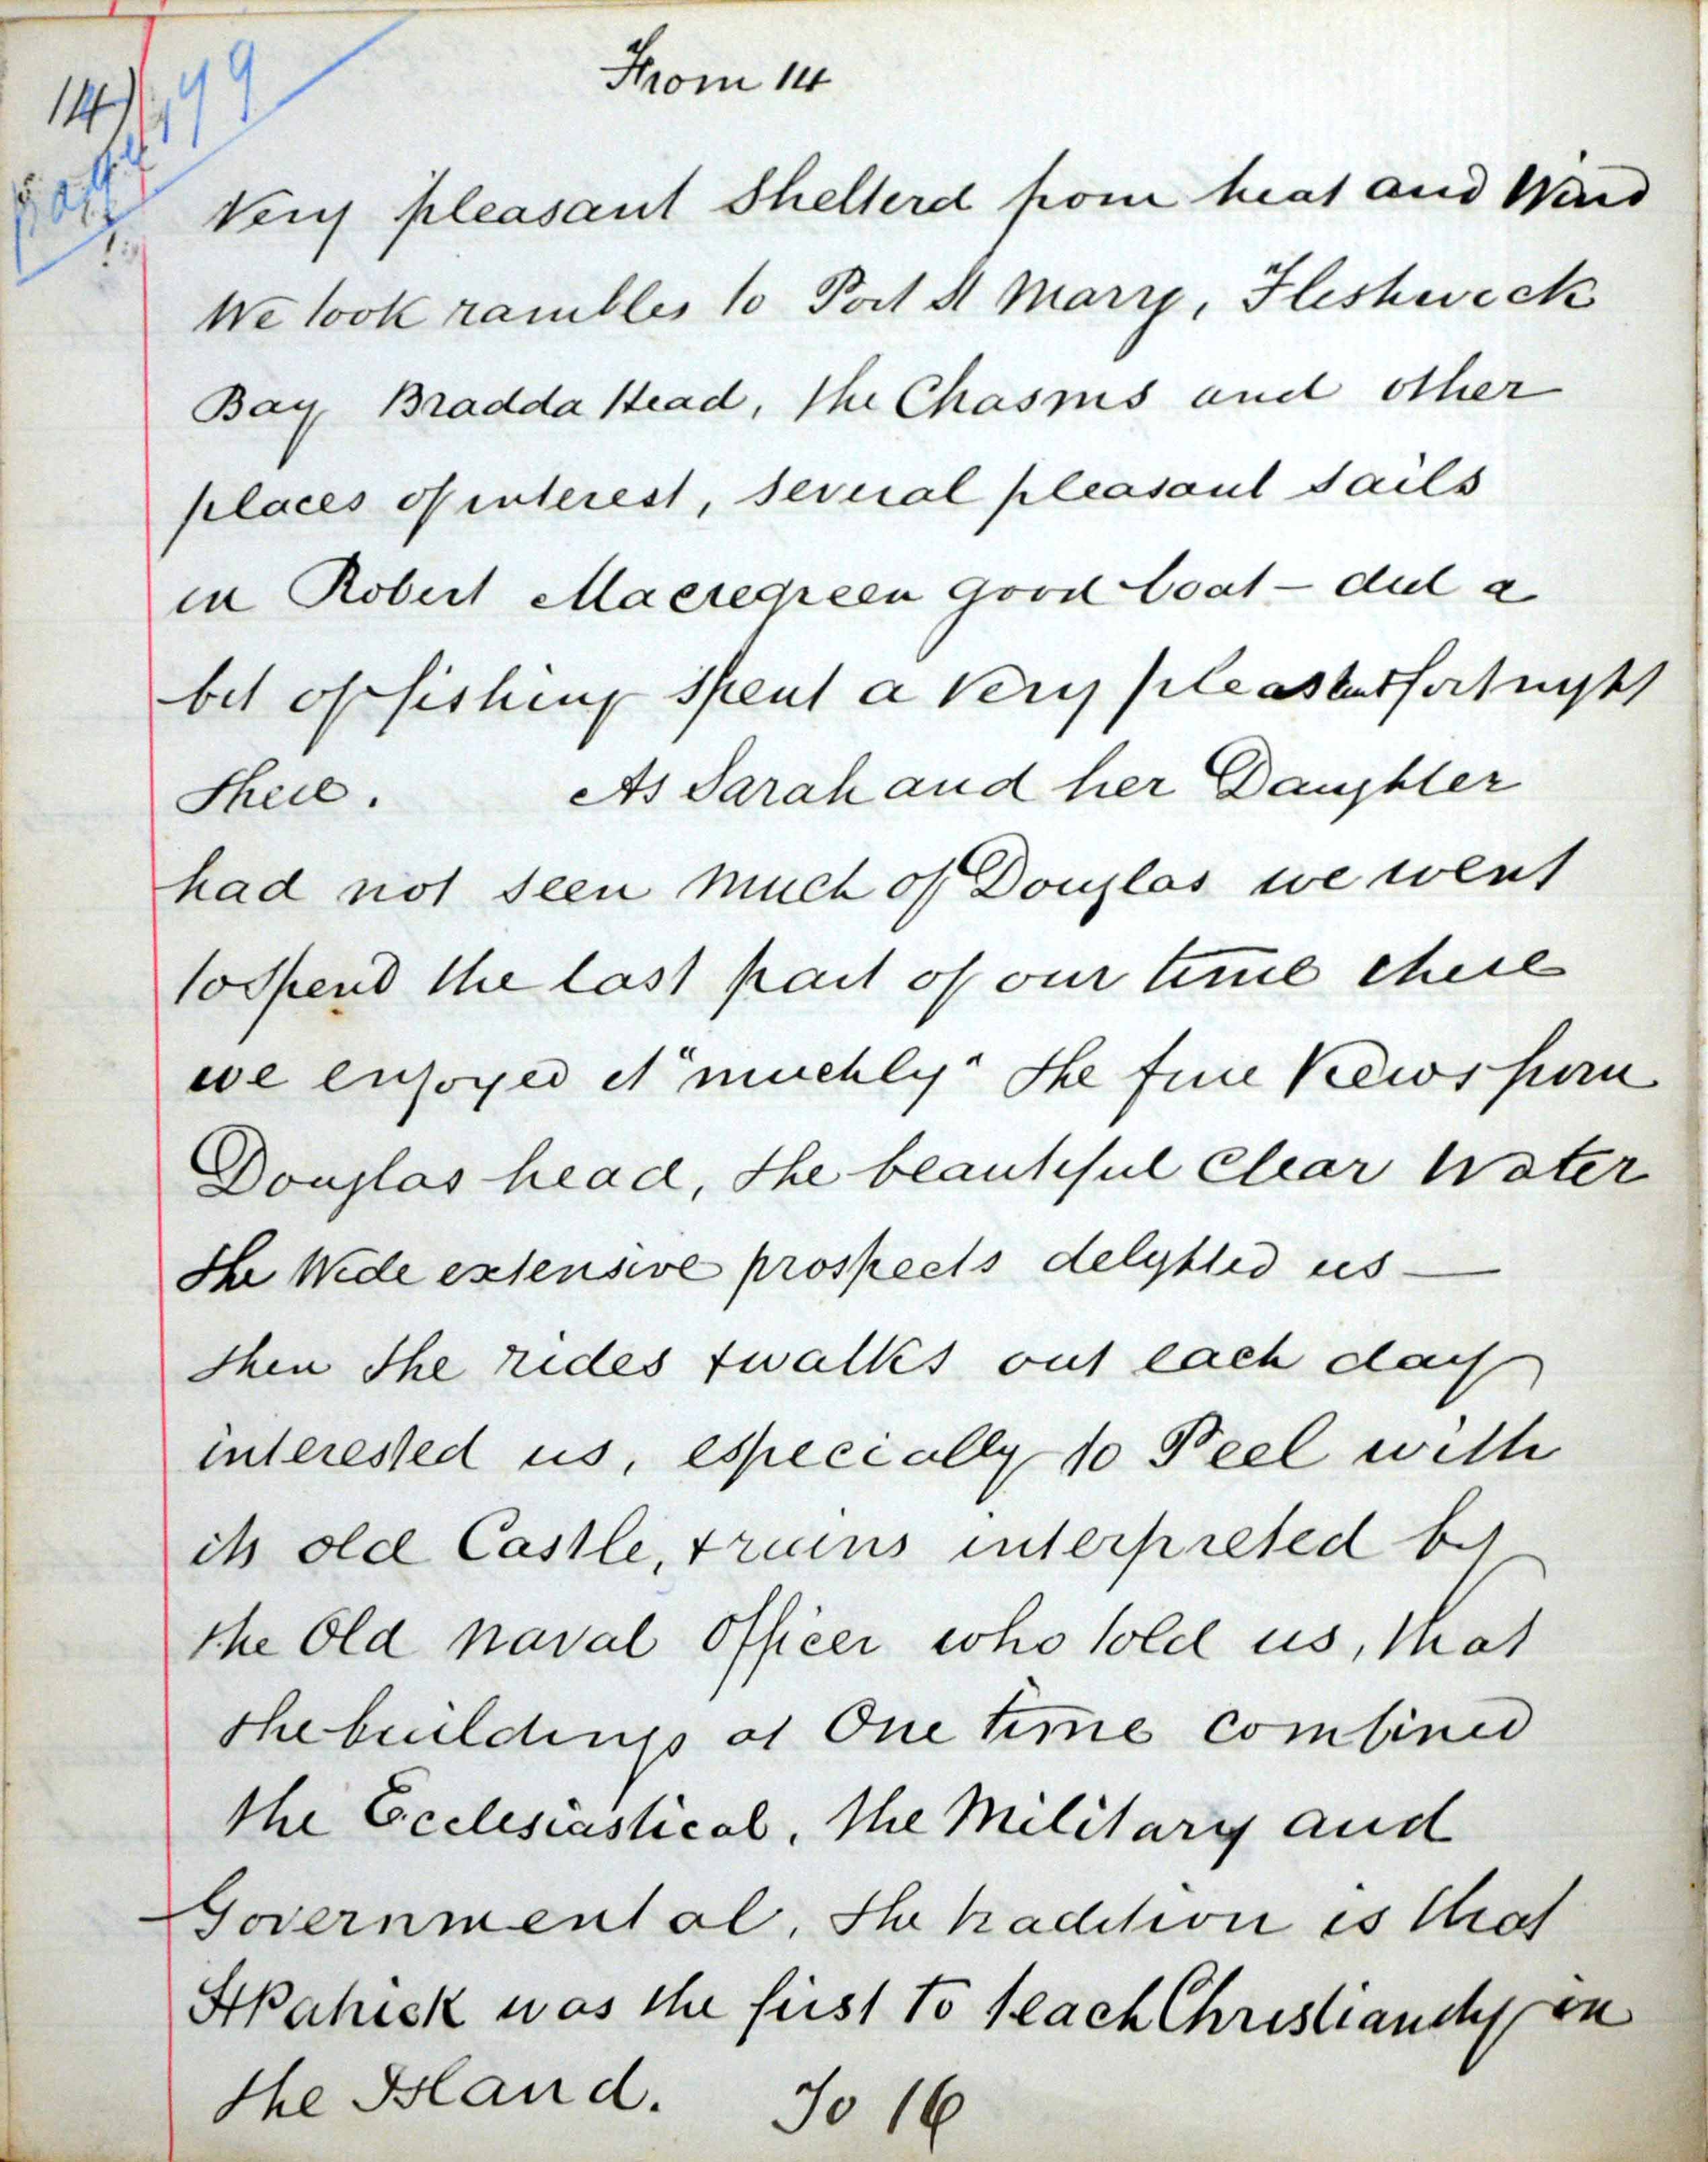 From 14
14)
149
Page
Very pleasant Shelterd from heat and Wind
We took rambles to Port St Marry, Fleshweck
Bay Bradda Head, the Chasms and other
places of interest, several pleasant sails
in Robert Macregreen good boat - did a
bit of fishing spent a very pleasant fortnight
there. As Sarah and her Daughter
had not seen much of Douglas we went
to spend the last part of our time there
we enjoyed it "muchly" the fine views from
Douglas head, the beautiful clear water
the Wide extensive prospects delighted us —
then the rides & walks out each day
interested us, especially to Peel with
its old Castle, & ruins interpreted by
the Old naval Officer who told us, that
the buildings at One time combined
the Ecclesiastical, the Military and
Governmental, the tradition is that
St Patrick was the first to teach Christianity in
the Island. To 16